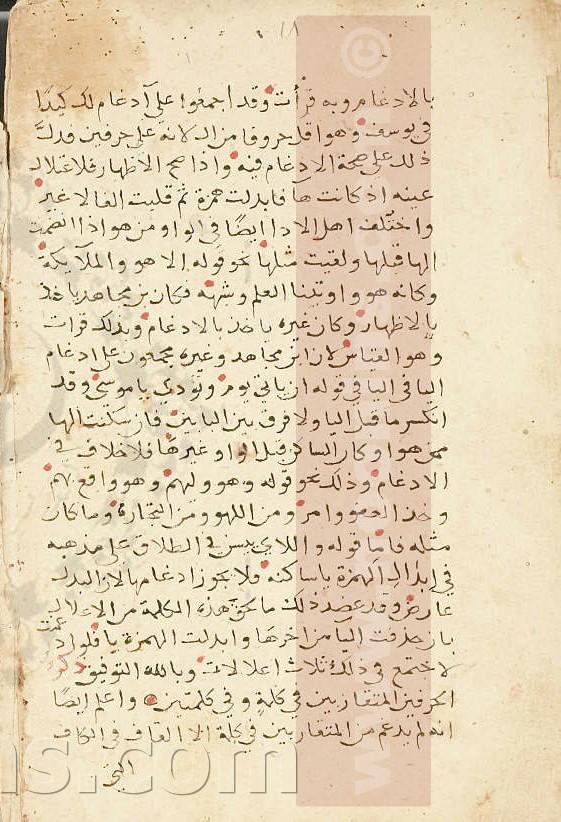 ١٨
بالادغام وبه قرأت وقد اجمعوا على ادغام لك كيدا
في يوسف وهو اقل حروفا من ال لانه على حرفين فدل
ذلك على صحة الادغام فيه واذا صح الاظهار فلاعتلال
عينه اذ كانت ها فابدلت همزة ثم قلبت الفا لا غير
واختلف اهل الادا ايضا في الواو من هو اذا انضمت
الها قبلها ولقيت مثلها نحو قوله الا هو والملآيكة
وكانه هو واوتينا العلم وشبهه فكان بن مجاهد ياخذ
بالاظهار وكان غيره ياخذ بالادغام وبذلك قرات
وهو القياس لان ابن مجاهد وغيره مجمعون على ادغام
اليا في اليا في قوله ان ياتي يوم ونودي ياموسى وقد
انكسر ما قبل اليا ولا فرق بين اليابين فان سكنت الها
من هو او كان الساكن قبل الواو غيرها فلا خلاف في
الادغام وذلك نحو قوله وهو وليهم وهو واقع بهم
وخذ العفو وامر ومن اللهو ومن التجارة وما كان
مثله فاما قوله واللاي يئسن في الطلاق على مذهبه
في ابدال الهمزة ياساكنة فلا يجوز ادغامها لان البدل
عارض وقد عضد ذلك ما لحق هذه الكلمة من الاعلال
بان حذفت اليا من اخرها وابدلت الهمزة يا فلو ادغمت
لاجتمع في ذلك ثلاث اعلالات وبالله التوفيق ذكر
الحرفين المتقاربين في كلمة وفي كلمتين واعلم ايضا
انه لم يدغم من المتقاربين في كلمة الا القاف في الكاف
التي